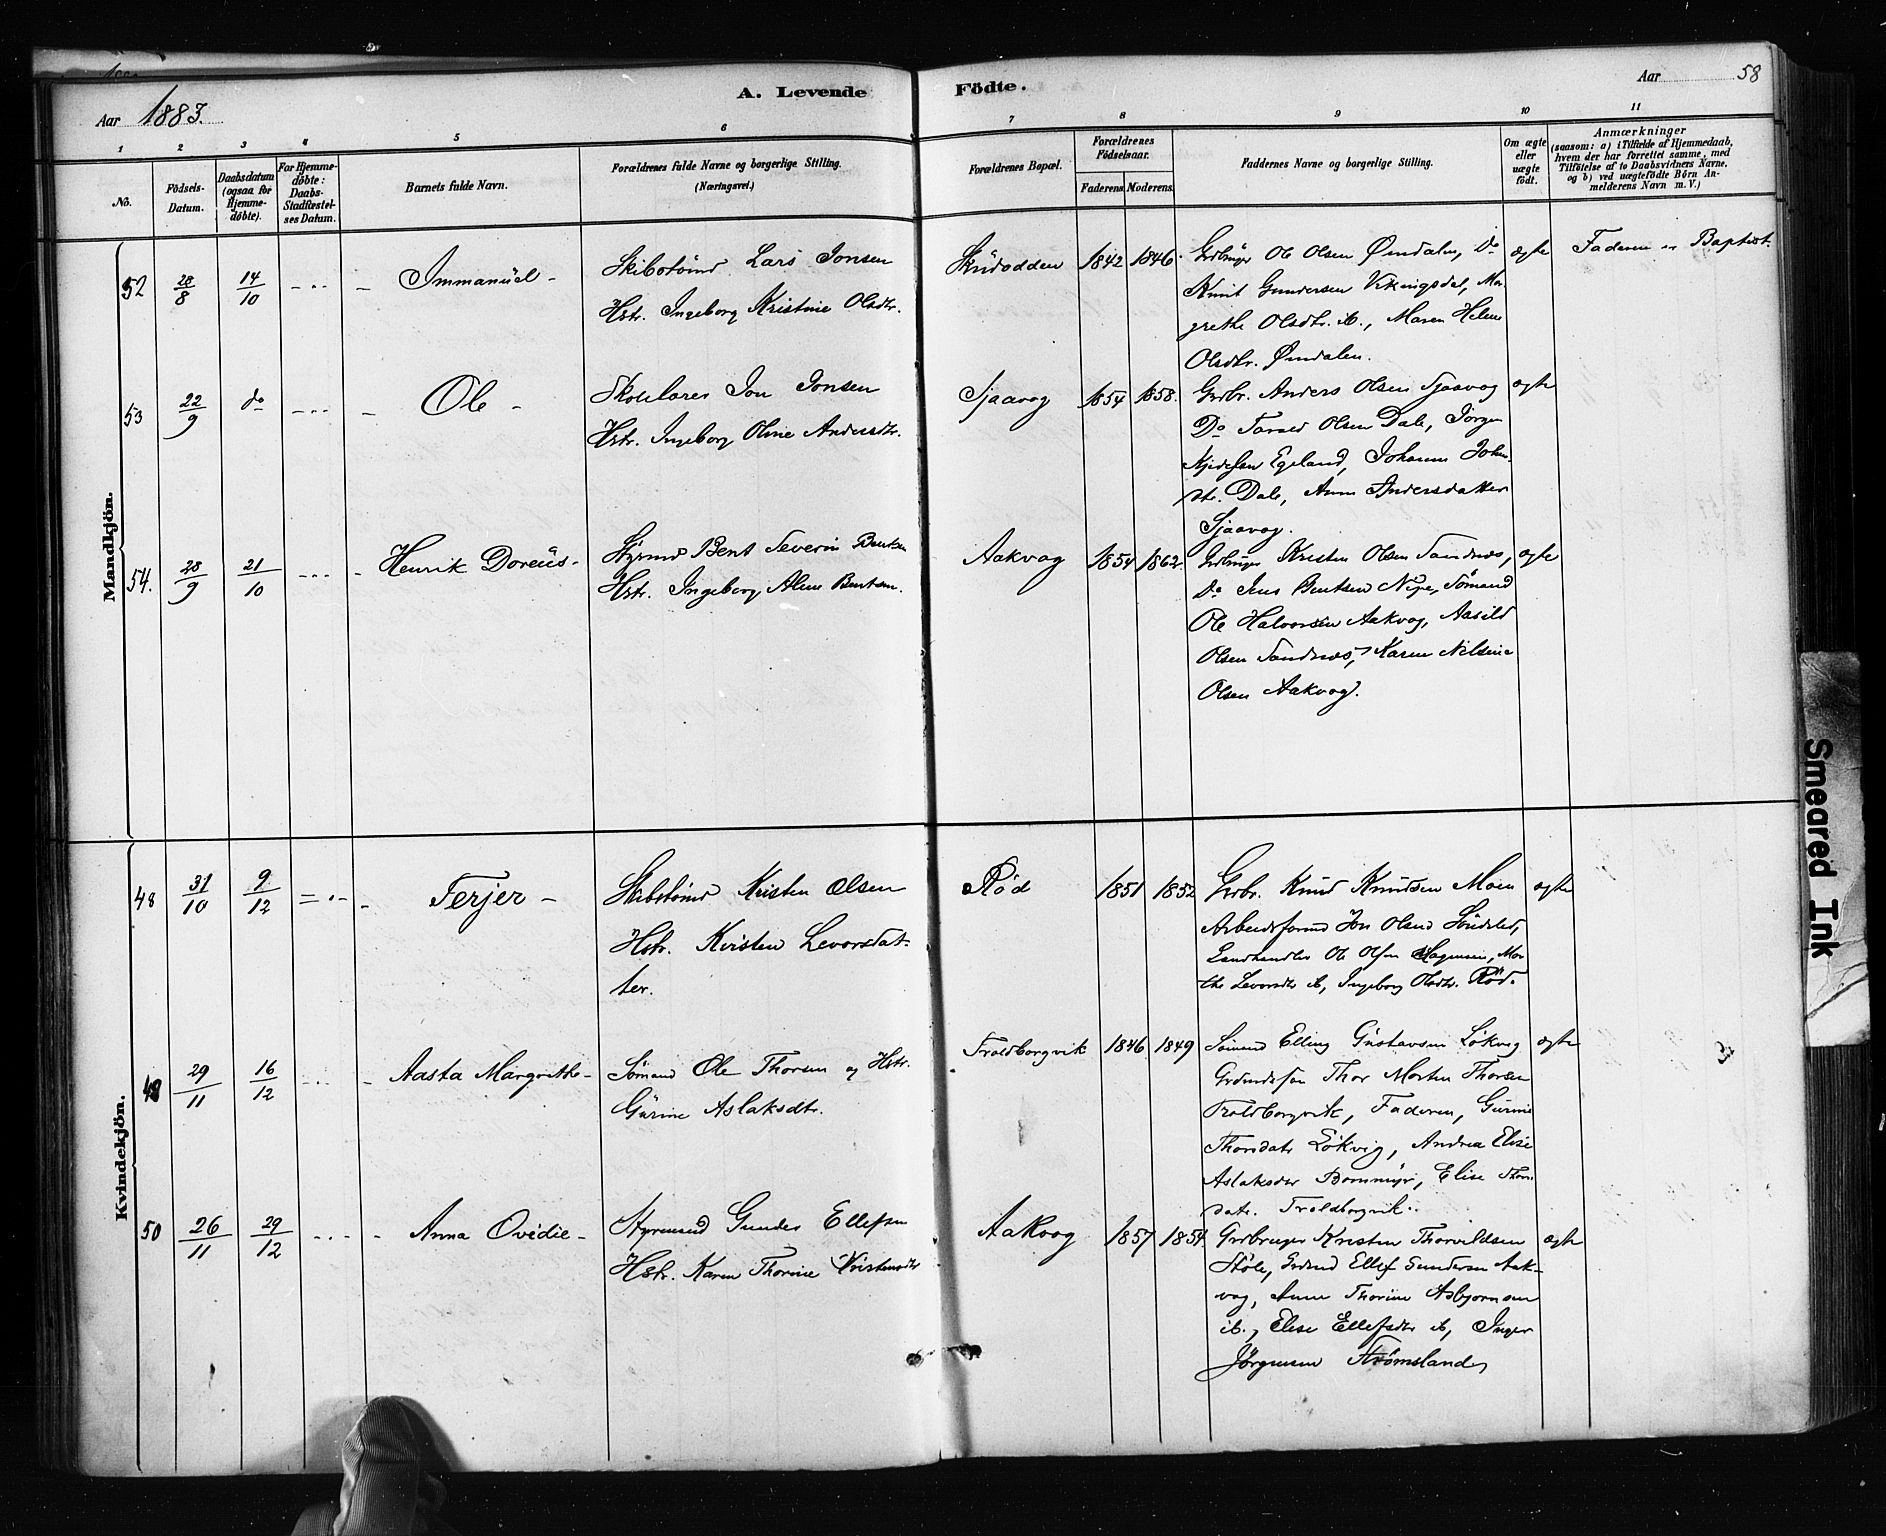 58
A. Levende Födte.
Aar 1883.
Aar
1 2 3 4 5 6 7 8 9 10 11
No.
Födsels-
Datum.
Daabsdatum
(ogsaa for
Hjemme-
döbte).
For Hjemme-
döbte:
Daabs-
Stadfæstel-
ses Datum.
Barnets fulde Navn.
Forældrenes fulde Navne og borgerlige Stilling.
(Næringsvei.)
Forældrenes Bopæl.
Forældrenes
Födselsaar.
Faderens. Moderens.
Faddernes Navne og borgerlige Stilling.
Om ægte
eller
uægte
født.
Anmærkninger
(saasom: a) i Tilfælde af Hjemmedaab,
hvem der har forrettet samme, med
Tilföielse af to Daabsvidners Navne,
og b) ved uægtefödte Börn An-
melderens Navn m. V.)
Mandkjön.
52 28/8 14/10 Immanuel -
Skibstömd. Lars Jonsen
Hstr. Ingeborg Kristine Olsdtr.
1842 1846.
Grdbruger Ole Olsen Ømdalen, Do
Knut Gundersen Vikingsdal, Mar-
grethe Olsdtr. ib., Maren Helene
Olsdtr. Ømdalen.
ægte
Faderen er Baptist.
53 22/9 do Ole -
Skolelærer Jon Jonsen
Hstr. Ingeborg Oline Andersdtr.
Sjaavag 1854 1858.
Grbr. Anders Olsen Sjaavag
Do Olsen Dale, Jörgen
Egeland, Johanne John-
dtr. Dale, Anne Andersdatter
Sjaavag.
ægte
54. 28/9 21/10 Henrik Doreüs -
Styrmd Bent Severin Bentsen
Hstr. Ingeborg Aline Bentsen.
Aakvag 1854 1862.
Grdbruger Kristen Olsen Sandnæs,
Do Jens Bentsen Nipe, Sömand
Ole Halvorsen Aakvag, Aasild
Olsen Sandnæs, Karen Nilsine
Olsen Aakvag.
ægte
Kvindekjön.
48 31/10 9/12 Terjer -
Skibstömd Kristen Olsen
Hstr. Kristen Levorsdat-
ter.
Röd 1851 1852
Grbr. Knud Knudsen Moen
Arbeidsformd Jon Olsen Söndeled,
Landhandler Ole Olsen Hagensen, Mar-
the Levorsdtr ib, Ingeborg Olsdtr. Röd.
ægte
49 29/11 16/12 Aasta Margrethe -
Sömand Ole Thorsen og Hstr.
Gurine Aslaksdtr.
Troldborgvik 1846 1849
Sömand Elling Gustavsen Lökvig
Thor Morten Thorsen
Troldborgvik, Faderen, Gurine
Thorsdatr Lökvig, Andrea Elise
Aslaksdtr Bommyr, Elise Thors-
datr. Troldborgvik.
ægte
50 26/11 29/12 Anna Ovidie -
Styrmand Gunder Ellefsen
Hstr. Karen Thorine Kristensdtr
Aakvag 1857 1854
Grdbruger Kristen Thorvildsen
Støle, Grdmd Ellef Gundersen Aak-
vag, Anne Thorine Asbjornsen
ib., Elise Ellefsdtr ib, Inger
Jörgensen Strömsland,
ægte
Smeared Ink